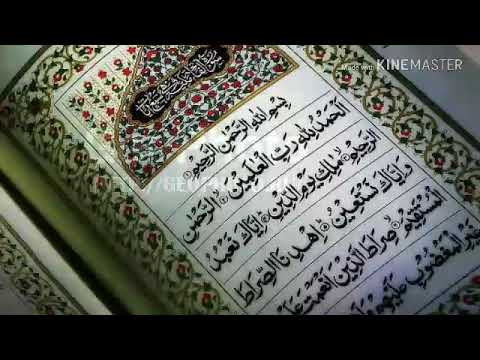 Made with KINEMASTER
بِسْمِ اللهِ الرَّحْمٰنِ الرَّحِيْمِ
اَلْحَمْدُ لِلّٰهِ رَبِّ الْعٰلَمِيْنَ الرَّحْمٰنِ
الرَّحِيْمِ مٰلِكِ يَوْمِ الدِّيْنِ اِيَّاكَ نَعْبُدُ
وَاِيَّاكَ نَسْتَعِيْنُ اِهْدِنَا الصِّرَاطَ
الْمُسْتَقِيْمَ صِرَاطَ الَّذِيْنَ اَنْعَمْتَ عَلَيْ
غَيْرِ الْمَغْضُوْبِ عَلَيْهِمْ